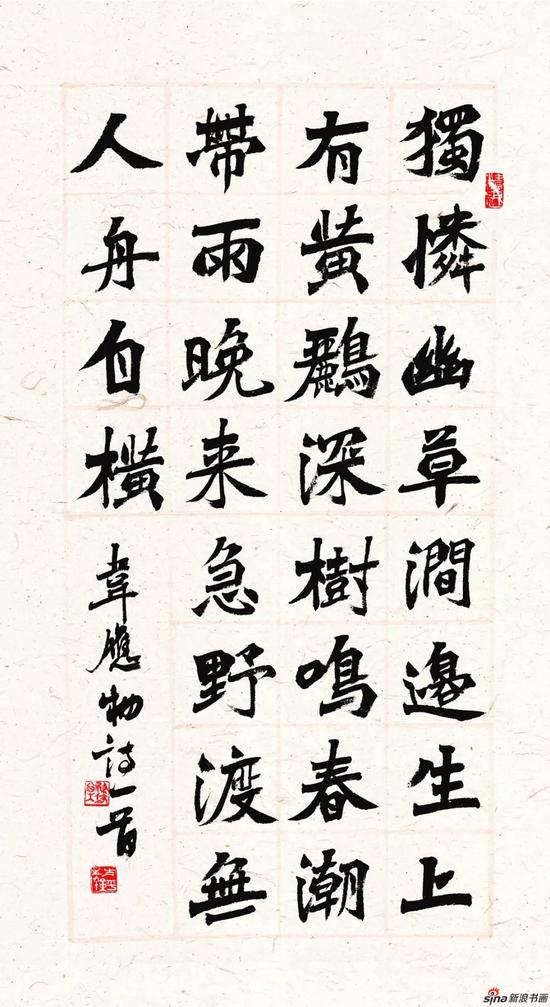 獨憐幽草澗邊生上
有黃鸝深樹鳴春潮
帶雨晚来急野渡無
人舟自橫
韋應物詩一首
sina新浪书画